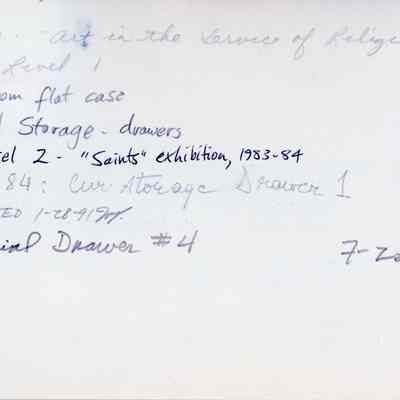 Art in the Service of Relig
Level 1
om flat case
Storage - drawers
el 2 - "Saints" exhibition, 1983-84
84: Cur. Storage Drawer 1
TED 1-28-91
Drawer #4
7-2